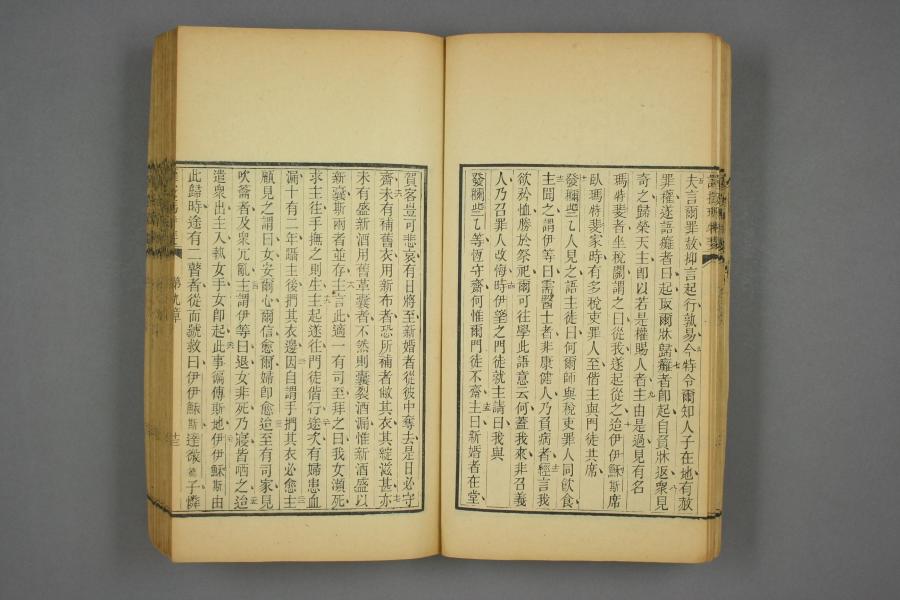 夫言爾罪赦抑言起行孰易今特令爾知人子在地有赦
罪權遂語癱者曰起取爾牀歸癱者卽起自負牀返衆見
奇之歸榮天主卽以若是權賜人者主由是過見有名
瑪特斐者坐稅關謂之曰從我遂起從之迨伊伊穌斯席
臥瑪特斐家時有多稅吏罪人至偕主與門徒共席
發𠵽些乙人見之語主徒曰何爾師與稅吏罪人同飲食
主聞之謂伊等曰需醫士者非康健人乃負病者經言我
欲矜恤勝於祭祀爾可往學此語意云何蓋我來非召義
人乃召罪人改悔時伊望之門徒就主請曰我與
發𠵽些乙等恆守齋何惟爾門徒不齋主曰新婚者在堂
賀客豈可悲哀有日將至新婚者從彼中奪去是日必守
齋未有補舊衣用新布者恐所補者敝其衣其綻滋甚亦
未有盛新酒用舊革囊者不然則囊裂酒漏惟新酒盛以
新囊斯兩者並存主言此適一有司至拜之曰我女瀕死
求主往手撫之則生主起遂往門徒偕行途次有婦患血
漏十有二年躡主後捫其衣邊因自謂手捫其衣必愈主
顧見之謂曰女安爾心爾信愈爾婦卽愈迨至有司家見
吹籥者及衆宂亂主謂伊等曰退女非死乃寢皆哂之迨
遣衆出主入執女手女卽起此事徧傳斯地伊伊穌斯由
此歸時途有二瞽者從而號救曰伊伊穌斯達微德子憐
第九章